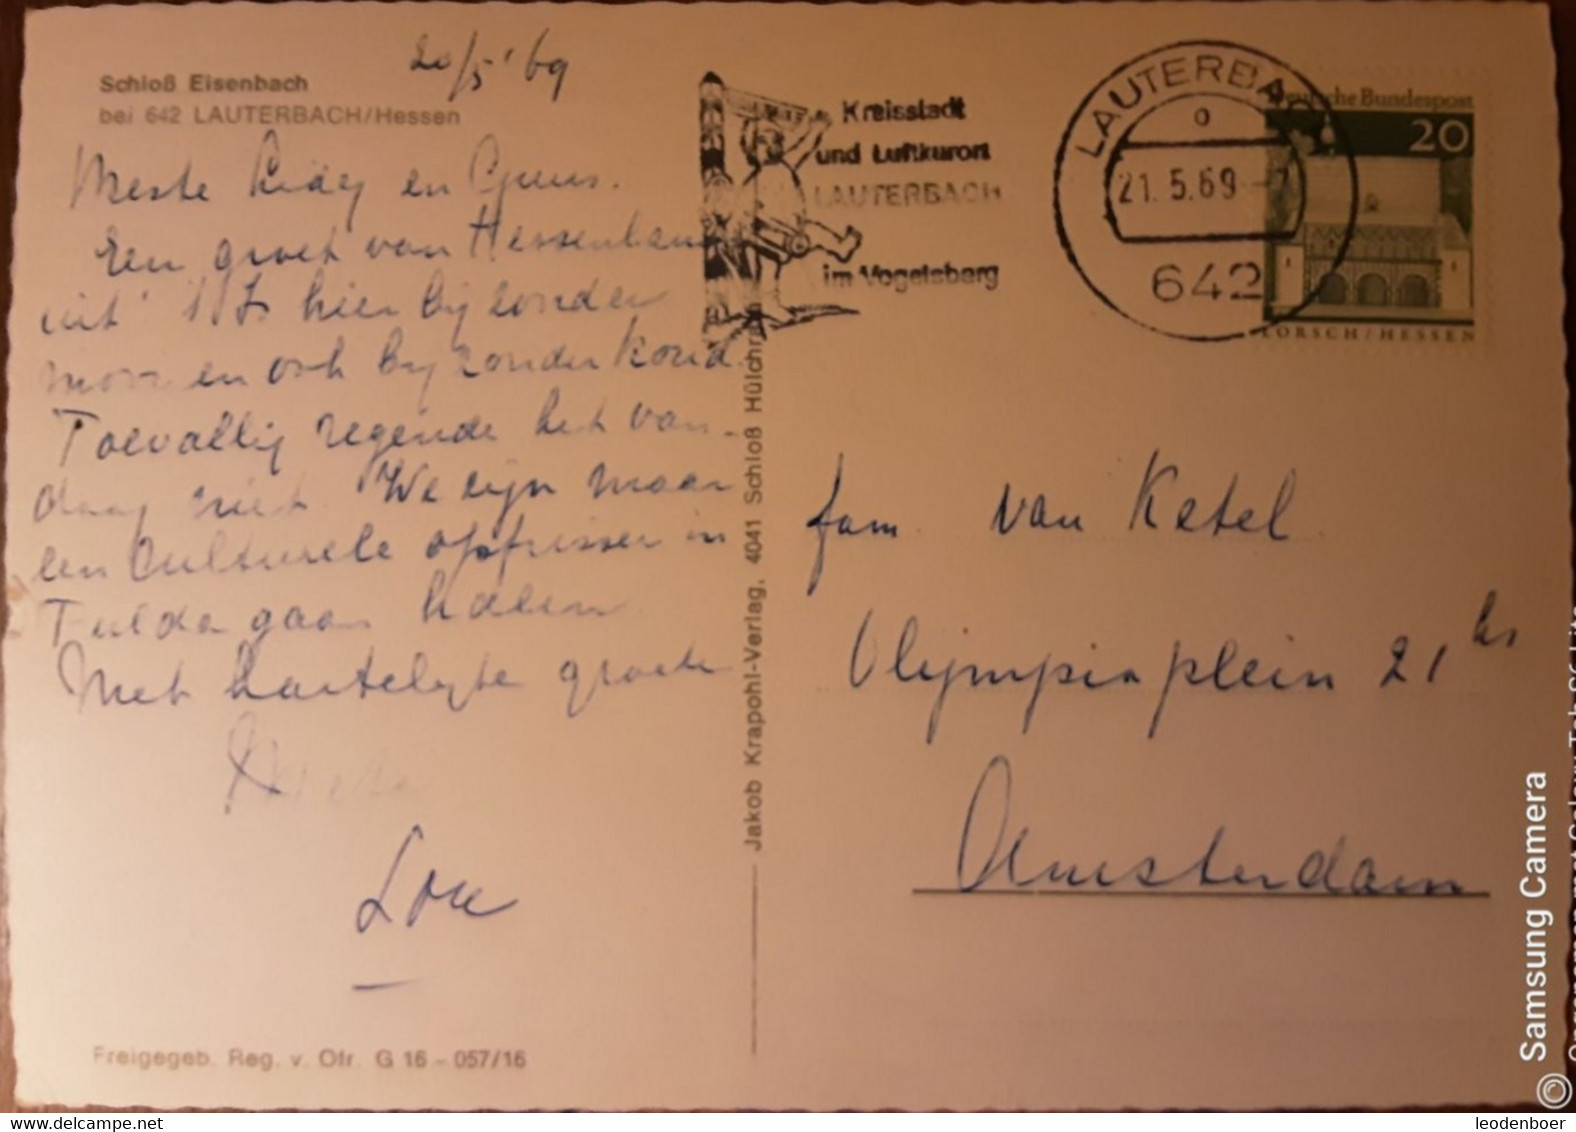 20/5 '69
Schloß Eisenbach
bei 642 LAUTERBACH/Hessen
en Guus.
Een groet van Hessenland
uit. 't Is hier byzonder
mooi en ook byzonder koud.
Toevallig regende het van-
daag niet. We zijn maar
een culturele opfrisser in
Fulda gaan halen
Met hartelyke groeten
Lou
Freigegeb. Reg. v. Ofr. G 16 - 057/16
Jakob Krapohl-Verlag, 4041 Schloß Hülchrath
Kreisstadt
und Luftkurort
LAUTERBACH
im Vogelsberg
LAUTERBACH
21.5.69-7
642
Deutsche Bundespost
20
LORSCH/HESSEN
fam. van Ketel
Olympiaplein 21 hs
Amsterdam
© Samsung Camera
leodenboer